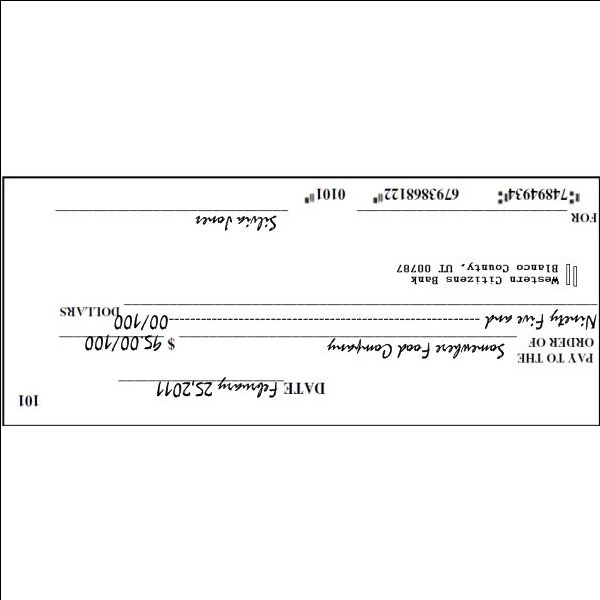 101
DATE February 25,2011
PAY TO THE
ORDER OF Somewhere Food Company $ 95.00/100
Ninety Five and ----------00/100 DOLLARS
Western Citizens Bank
Blanco County, UT 00787
FOR Silvia Jones
⑆74894934⑆ 6793868122⑈ 0101⑈